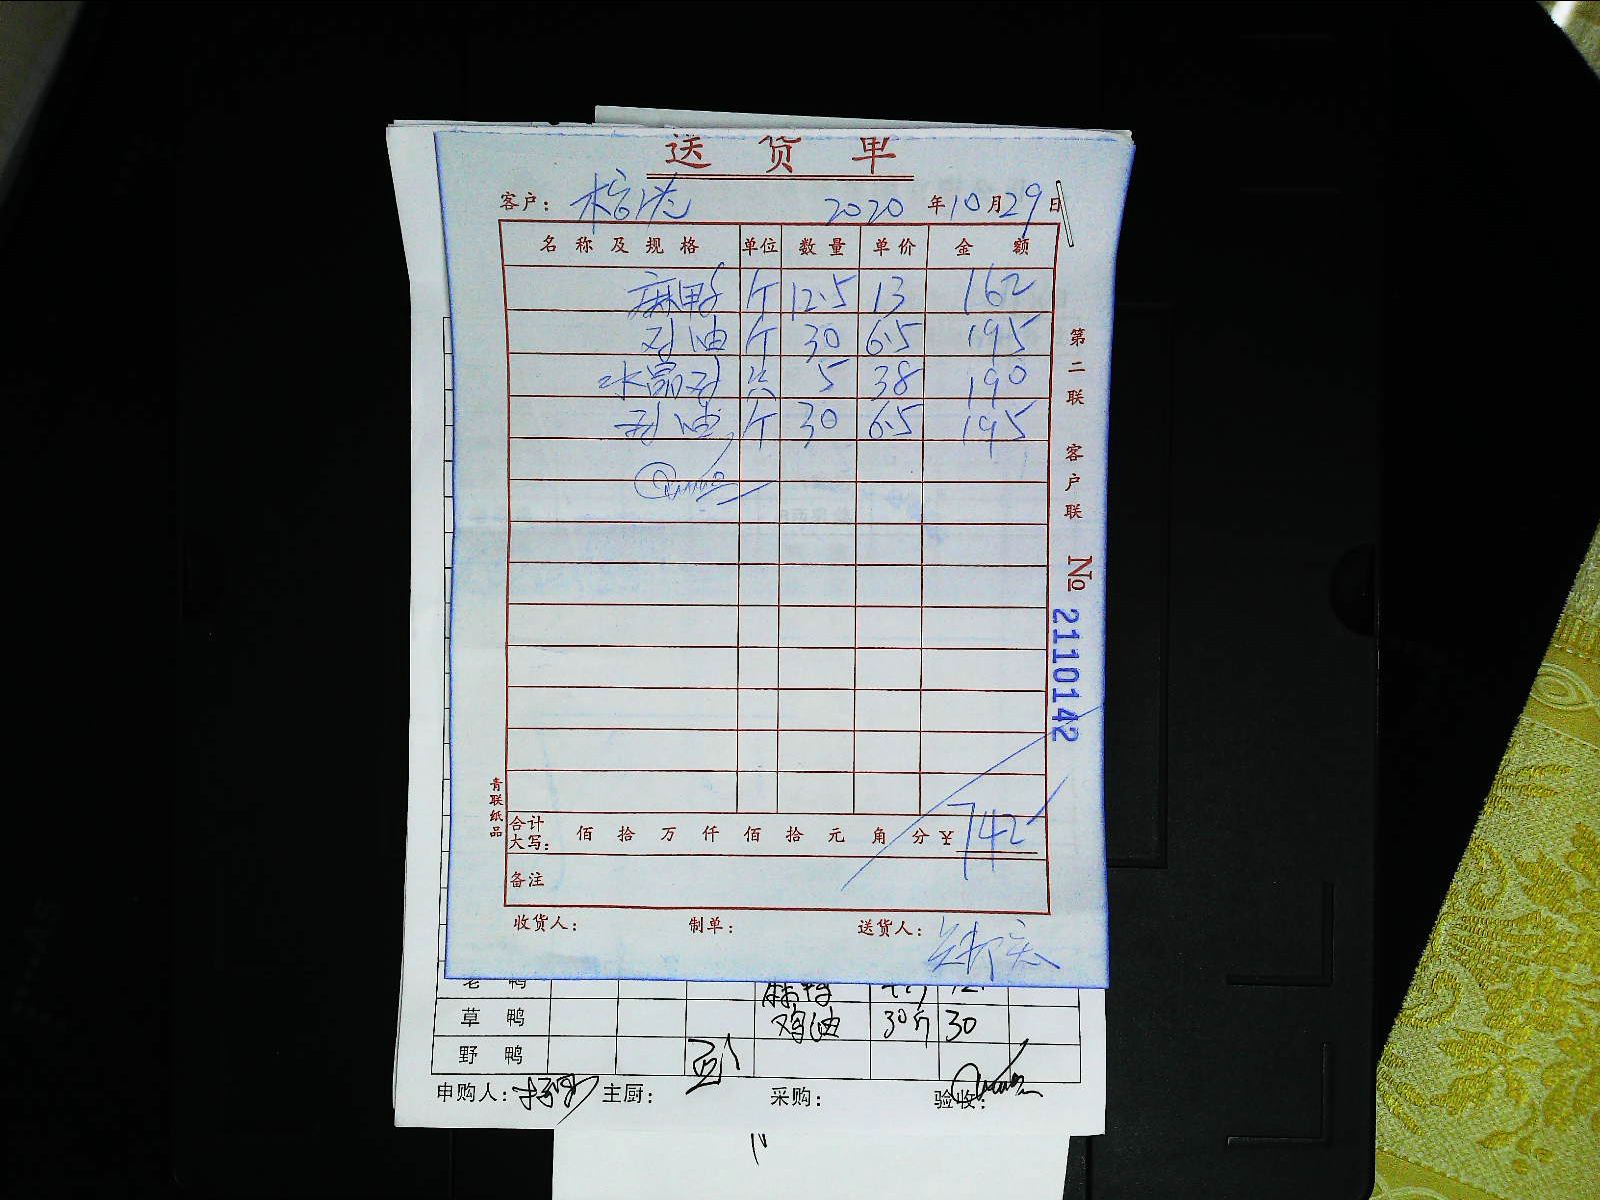 送货单
客户： 2020年10月29日
名称及规格 单位 数量 单价 金额
麻鸭 斤 12.5 13 162
鸡油 斤 30 6.5 195
水晶鸡 只 5 38 190
鸡油 斤 30 6.5 195
合计大写： 佰拾万仟佰拾元角分 ¥742
备注
收货人： 制单： 送货人：
第二联 客户联
No 2110142
青联纸品
老鸭 麻鸭
草鸭 鸡油 30斤 30
野鸭
申购人： 主厨： 采购： 验收：